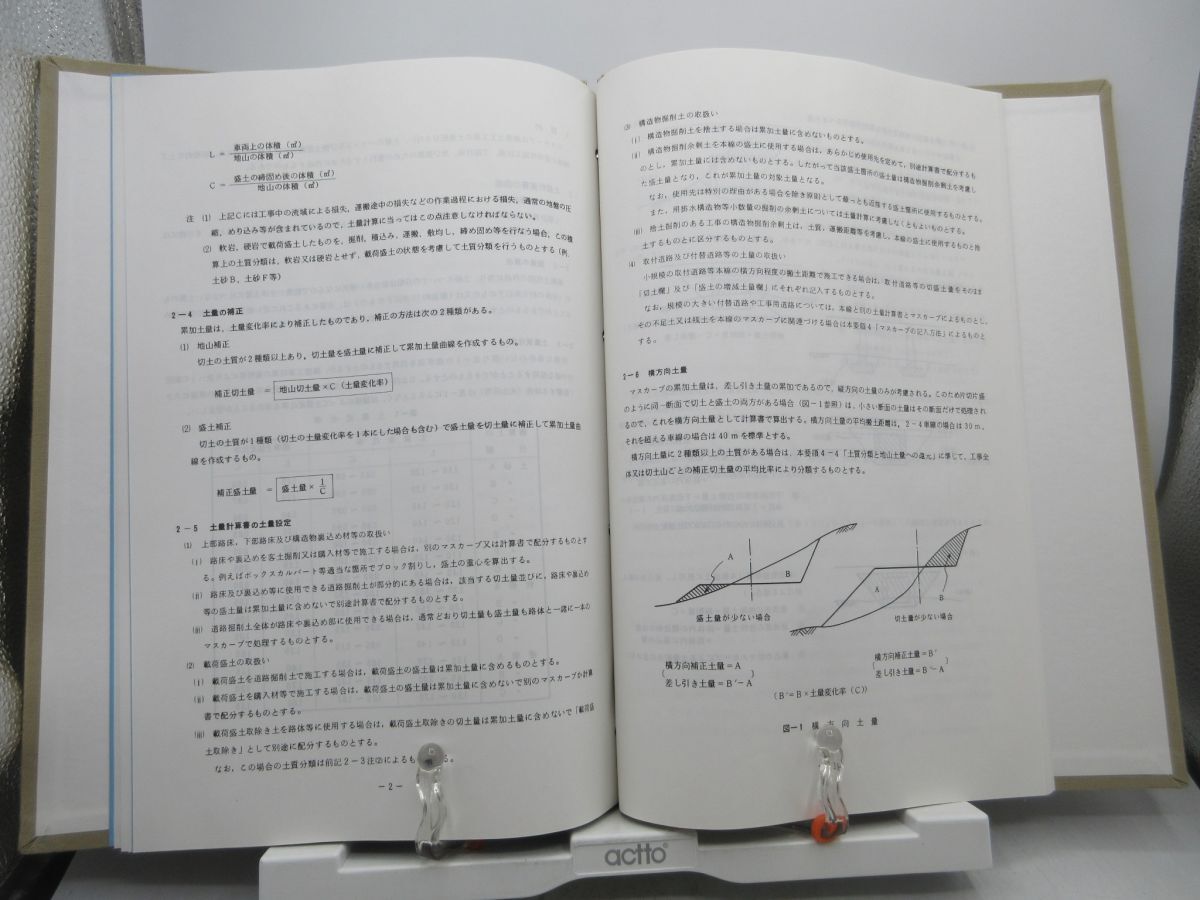 L = 車両上の体積 (㎥) / 地山の体積 (㎥)
C = 盛土の締固め後の体積 (㎥) / 地山の体積 (㎥)
注 (1) 上記には工事中の流域による損失，運搬途中の損失などの作業過程における損失，通常の地盤の圧
縮，めり込み等が含まれているので，土量計算に当ってはこの点注意しなければならない。
(2) 軟岩，硬岩で載荷盛土したものを，掘削，積込み，運搬，敷均し，締め固め等を行なう場合，この積
算上の土質分類は，軟岩又は硬岩とせず，載荷盛土の状態を考慮して土質分類を行うものとする（例，
土砂B，土砂F等）
2－4 土量の補正
累加土量は，土量変化率により補正したものであり，補正の方法は次の2種類がある。
(1) 地山補正
切土の土質が2種類以上あり，切土量を盛土量に補正して累加土量曲線を作成するもの。
補正切土量 = 地山切土量×C（土量変化率）
(2) 盛土補正
切土の土質が1種類（切土の土量変化率を1本にした場合も含む）で盛土量を切土量に補正して累加土量曲
線を作成するもの。
補正盛土量 = 盛土量× 1/C
2－5 土量計算書の土量設定
(1) 上部路床，下部路床及び構造物裏込め材等の取扱い
(ⅰ) 路床や裏込めを客土掘削又は購入材等で施工する場合は，別のマスカーブ又は計算書で配分するものとす
る。例えばボックスカルバート等適当な箇所でブロック割りし，盛土の重心を算出する。
(ⅱ) 路床及び裏込め等に使用できる道路掘削土が部分的にある場合は，該当する切土量並びに，路床や裏込め
等の盛土量は累加土量に含めないで別途計算書で配分するものとする。
(ⅲ) 道路掘削土全体が路床や裏込め部に使用できる場合は，通常どおり切土量も盛土量も路体と一緒に一本の
マスカーブで処理するものとする。
(2) 載荷盛土の取扱い
(ⅰ) 載荷盛土を道路掘削土で施工する場合は，載荷盛土の盛土量は累加土量に含めるものとする。
(ⅱ) 載荷盛土を購入材等で施工する場合は，載荷盛土の盛土量は累加土量に含めないで別のマスカーブか計算
書で配分するものとする。
(ⅲ) 載荷盛土取除き土を路体等に使用する場合は，載荷盛土取除きの切土量は累加土量に含めないで「載荷盛
土取除き」として別途に配分するものとする。
なお，この場合の土質分類は前記2－3注(2)によるも　る。
－2－
(3) 構造物掘削土の取扱い
(ⅰ) 構造物掘削土を捨土する場合は累加土量に含めないものとする。
(ⅱ) 構造物掘削余剰土を本線の盛土に使用する場合は，あらかじめ使用先を定めて，別途計算書で配分するも
のとし，累加土量には含めないものとする。したがって当該盛土箇所の盛土量は構造物掘削余剰土を考慮し
た盛土量となり，これが累加土量の対象土量となる。
なお，使用先は特別の理由がある場合を除き原則として最っとも近接する盛土箇所に使用するものとする。
また，用排水構造物等小数量の掘削の余剰土については土量計算に考慮しなくともよいものとする。
(ⅲ) 捨土のある工事の構造物掘削余剰土は，土質，運搬距離等を考慮し，本線の盛土に使用するものと捨
土するものとに区分するものとする。
(4) 取付道路及び付替道路等の土量の取扱い
小規模の取付道路等本線の横方向程度の搬土距離で施工できる場合は，取付道路等の切盛土量をそのまま
「切土欄」及び「盛土の増減土量欄」にそれぞれ記入するものとする。
なお，規模の大きい付替道路や工事用道路については，本線と別の土量計算書とマスカーブによるものとし，
その不足土又は残土を本線のマスカーブに関連づける場合は本要領4「マスカーブの記入方法」によるものと
する。
2－6 横方向土量
マスカーブの累加土量は，差し引き土量の累加であるので，縦方向の土量のみが考慮される。このため片切片盛
のように同一断面で切土と盛土の両方がある場合（図－1参照）は，小さい断面の土量はその断面だけで処理され
るので，これを横方向土量として計算書で算出する。横方向土量の平均搬土距離は，2～4車線の場合は30m，
それを超える車線の場合は40mを標準とする。
横方向土量に2種類以上の土質がある場合は，本要領4－4「土質分類と地山土量への還元」に準じて，工事全
体又は切土山ごとの補正切土量の平均比率により分類するものとする。
A
B
盛土量が少ない場合
A
B
切土量が少ない場合
横方向補正土量＝A
差し引き土量＝B′－A
横方向補正土量＝B′
差し引き土量＝B′－A
（B′＝B×土量変化率（C））
図－1 横方向土量
actto